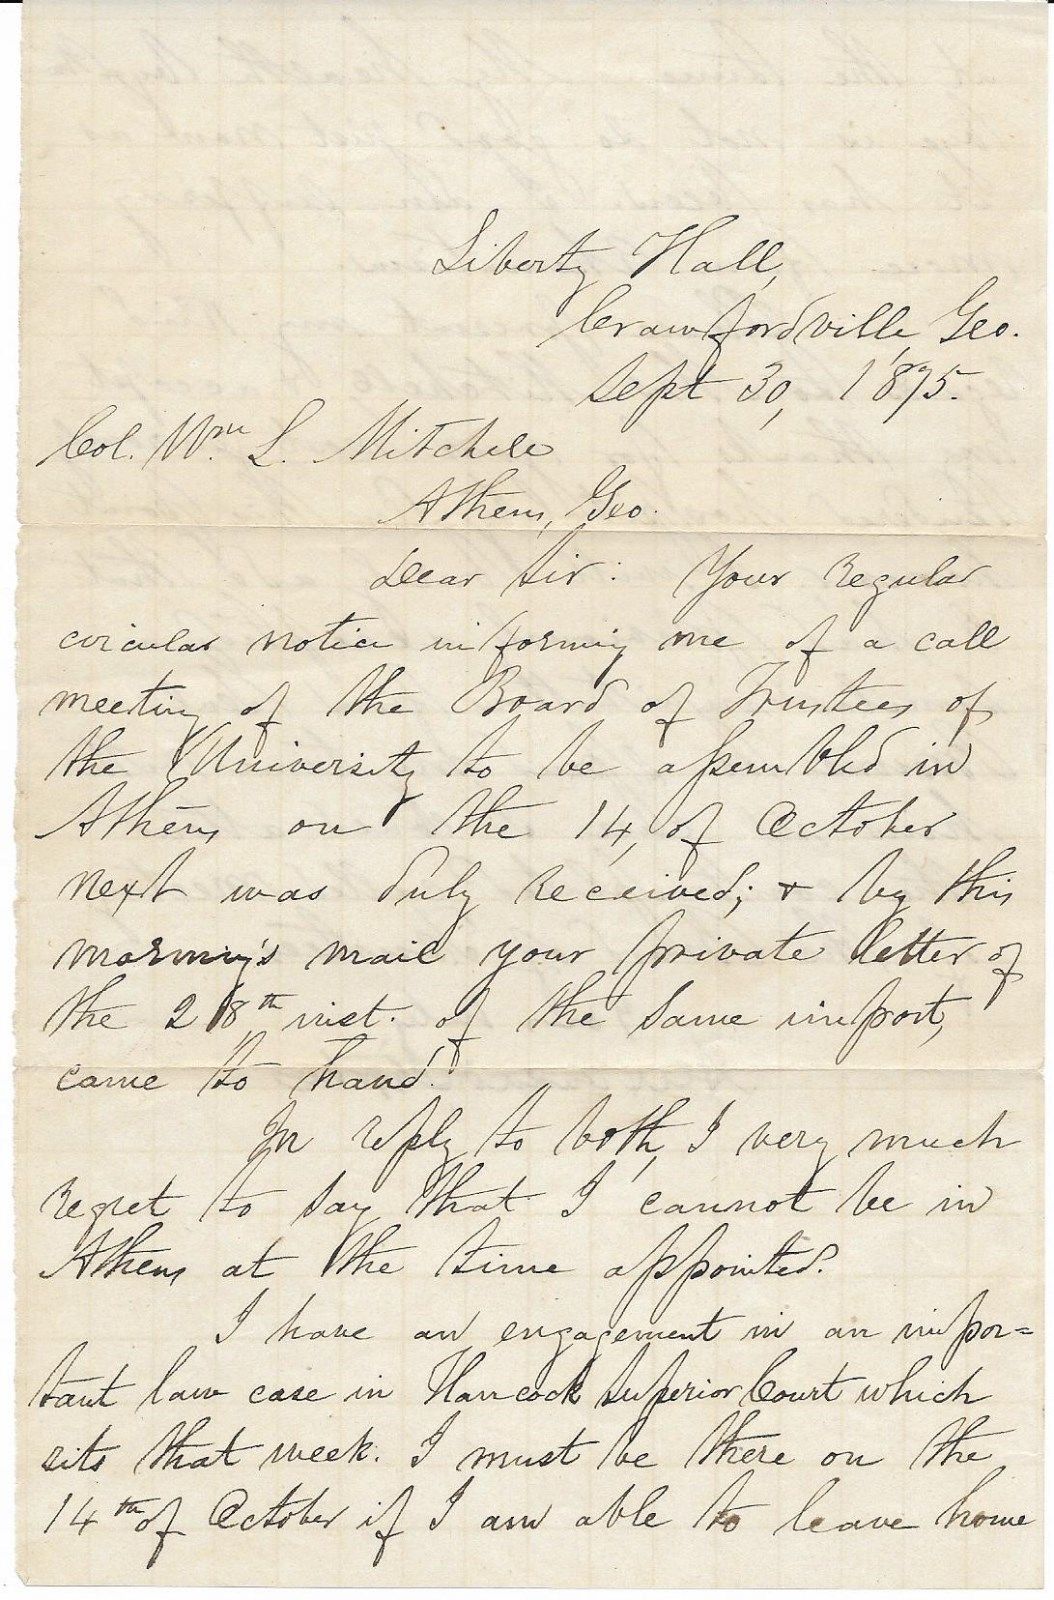 Liberty Hall,
Crawfordville, Geo.
Sept 30, 1875.
Col. Wm. L. Mitchell
Athens, Geo.
Dear Sir: Your regular
circular notice informing me of a call
meeting of the Board of Trustees of
the University to be assembled in
Athens on the 14, of October
next was duly received; & by this
morning's mail your private letter of
the 28th inst. of the same import,
came to hand.
In reply to both, I very much
regret to say that I cannot be in
Athens at the time appointed.
I have an engagement in an impor=
tant law case in Hancock Superior Court which
sits that week. I must be there on the
14th of October if I am able to leave home